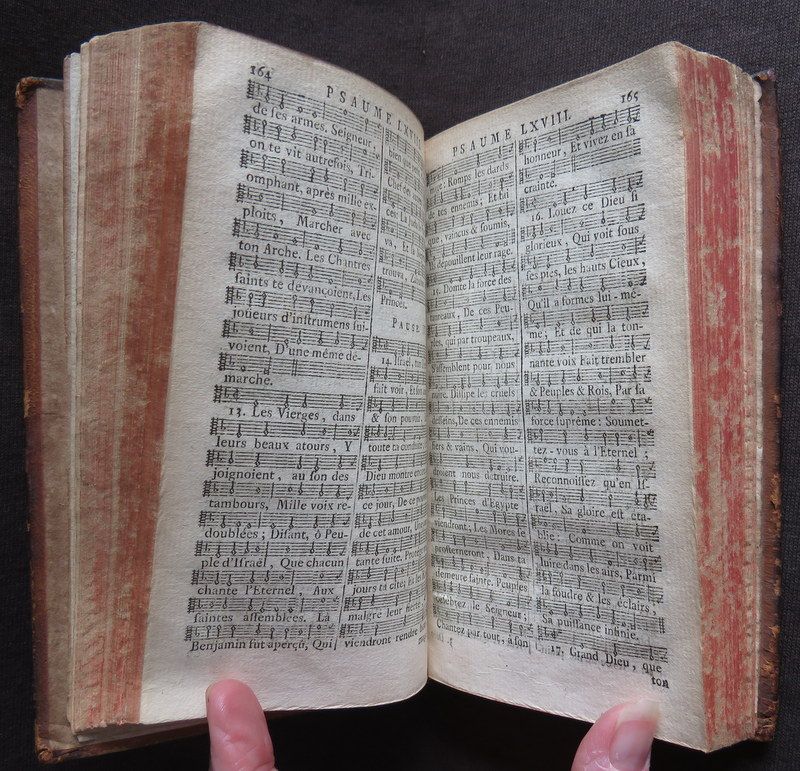 164
PSAUME
de ses armes. Seigneur,
on te vit autrefois, Tri-
omphant, après mille ex-
ploits, Marcher avec
ton Arche. Les Chantres
saints te devançoient, Les
joueurs d'instrumens sui-
voient, D'une même dé-
marche.
13. Les Vierges, dans
leurs beaux atours, Y
joignoient, au son des
tambours, Mille voix re-
doublées; Disant, ô Peu-
ple d'Israël, Que chacun
chante l'Eternel, Aux
saintes assemblées. Là
Benjamin fut aperçû, Qui
Chef des
trouva,
Princes
PAUSE
14. Israël,
fait voir, Et
& son pouvoir
toute ta conduite
Dieu montre en
ce jour, De ce
de cet amour,
tante suite.
jours ta
malgré leur
viendront rendre
165
PSAUME LXVIII.
Romps les dards
de tes ennemis, Et fai
que, vaincus & soumis,
dépouillent leur rage.
15. Domte la force des
De ces Peu-
ples, qui par troupeaux,
S'assemblent pour nous
Dissipe les cruels
desseins, De ces ennemis
fiers & vains, Qui vou-
droient nous détruire.
Les Princes d'Egypte
viendront; Les Mores se
prosterneront, Dans ta
demeure sainte. Peuples
célébrez le Seigneur;
Chantez par tout, à son
honneur, Et vivez en sa
crainte.
16. Louez ce Dieu si
glorieux, Qui voit sous
ses pies, les hauts Cieux,
Qu'il a formes lui-mê-
me; Et de qui la ton-
nante voix Fait trembler
& Peuples & Rois, Par sa
force suprême: Soumet-
tez-vous à l'Eternel;
Reconnoissez qu'en Is-
raël, Sa gloire est éta-
blie: Comme on voit
luire dans les airs, Parmi
la foudre & les éclairs,
Sa puissance infinie.
17. Grand Dieu, que
ton